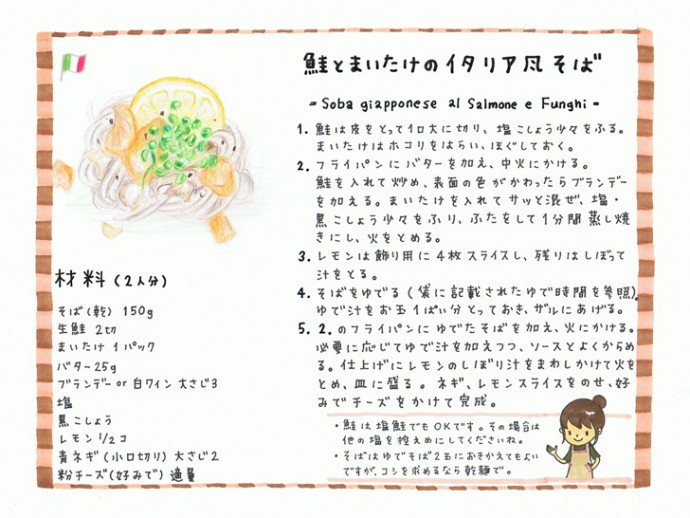 鮭とまいたけのイタリア風そば
- Soba giapponese al Salmone e Funghi -
1. 鮭は皮をとって1口大に切り、塩こしょう少々をふる。
まいたけはホコリをはらい、ほぐしておく。
2. フライパンにバターを加え、中火にかける。
鮭を入れて炒め、表面の色がかわったらブランデー
を加える。まいたけを入れてサッと混ぜ、塩・
黒こしょう少々をふり、ふたをして1分間蒸し焼
きにし、火をとめる。
3. レモンは飾り用に4枚スライスし、残りはしぼって
汁をとる。
4. そばをゆでる(袋に記載されたゆで時間を参照)。
ゆで汁をお玉1ぱい分とっておき、ザルにあげる。
5. 2.のフライパンにゆでたそばを加え、火にかける。
必要に応じてゆで汁を加えつつ、ソースとよくからめ
る。仕上げにレモンのしぼり汁をまわしかけて火を
とめ、皿に盛る。ネギ、レモンスライスをのせ、好
みでチーズをかけて完成。
・鮭は塩鮭でもOKです。その場合は
他の塩を控えめにしてくださいね。
・そばはゆでそば2玉におきかえてもよい
ですが、コシを求めるなら乾麺で。
材料(2人分)
そば(乾) 150g
生鮭 2切
まいたけ 1パック
バター25g
ブランデー or 白ワイン 大さじ3
塩
黒こしょう
レモン 1/2コ
青ネギ(小口切り) 大さじ2
粉チーズ(好みで) 適量